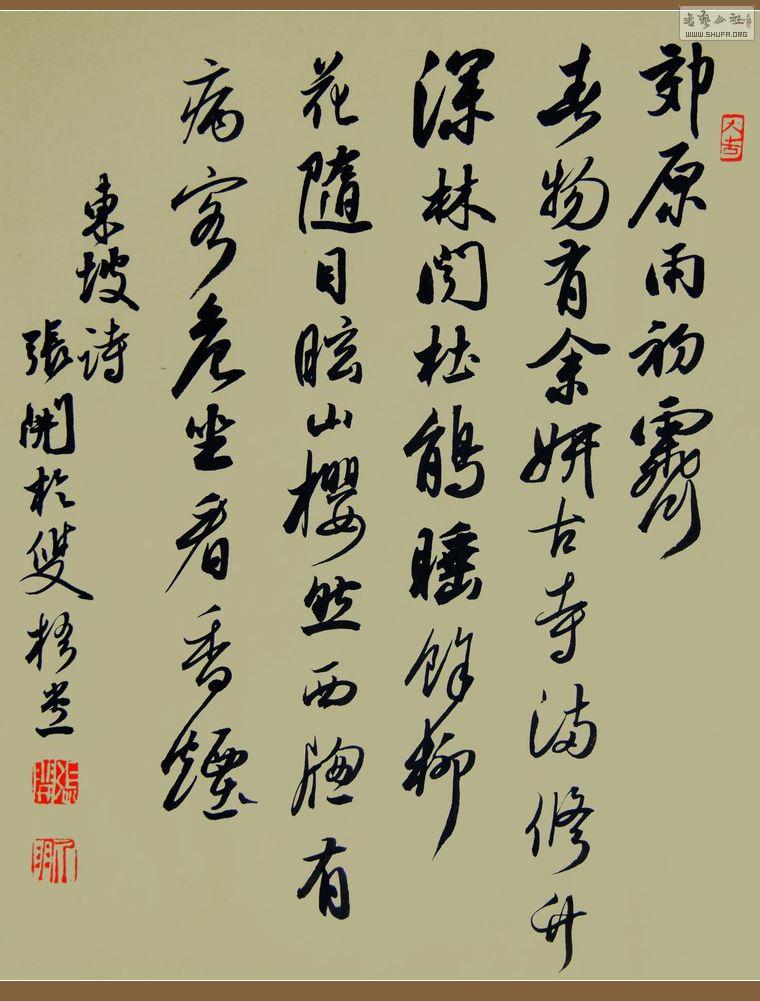 書藝公社
WWW.SHUFA.ORG
大吉
郊原雨初霽
春物有余妍古寺满修竹
深林闻杜鹃睡馀柳
花隨目眩山櫻然西牕有
病客危坐看香煙
東坡詩
張開於雙堂